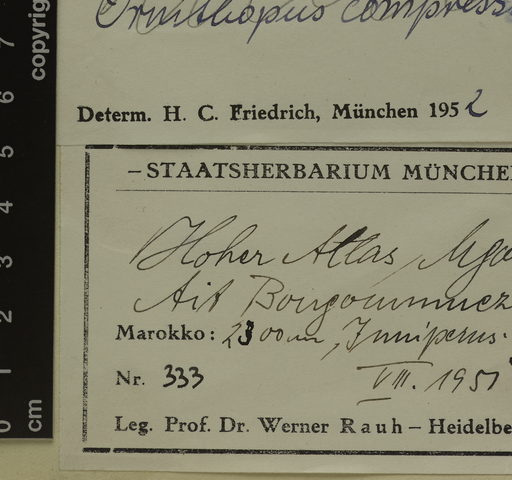 Ornithopus compress
Determ. H. C. Friedrich, München 1952
– STAATSHERBARIUM MÜNCHE
Hoher Atlas, Mgo
Ait Bougoummez
Marokko: 2300m, Juniperus-
Nr. 333
VIII. 1951
Leg. Prof. Dr. Werner Rauh – Heidelbe
copyrig
0 cm 1 2 3 4 5 6 7